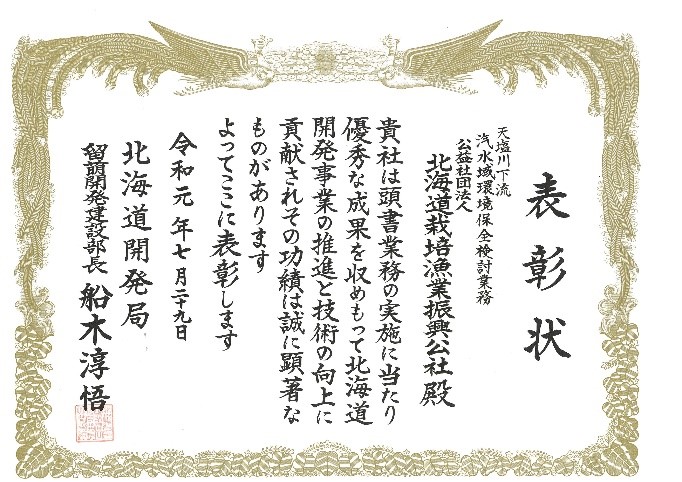 表彰状
天塩川下流
汽水域環境保全検討業務
公益社団法人
北海道栽培漁業振興公社殿
貴社は頭書業務の実施に当たり
優秀な成果を収めもって北海道
開発事業の推進と技術の向上に
貢献されその功績は誠に顕著な
ものがあります
よってここに表彰します
令和元年七月二十九日
北海道開発局
留萌開発建設部長 船木淳悟